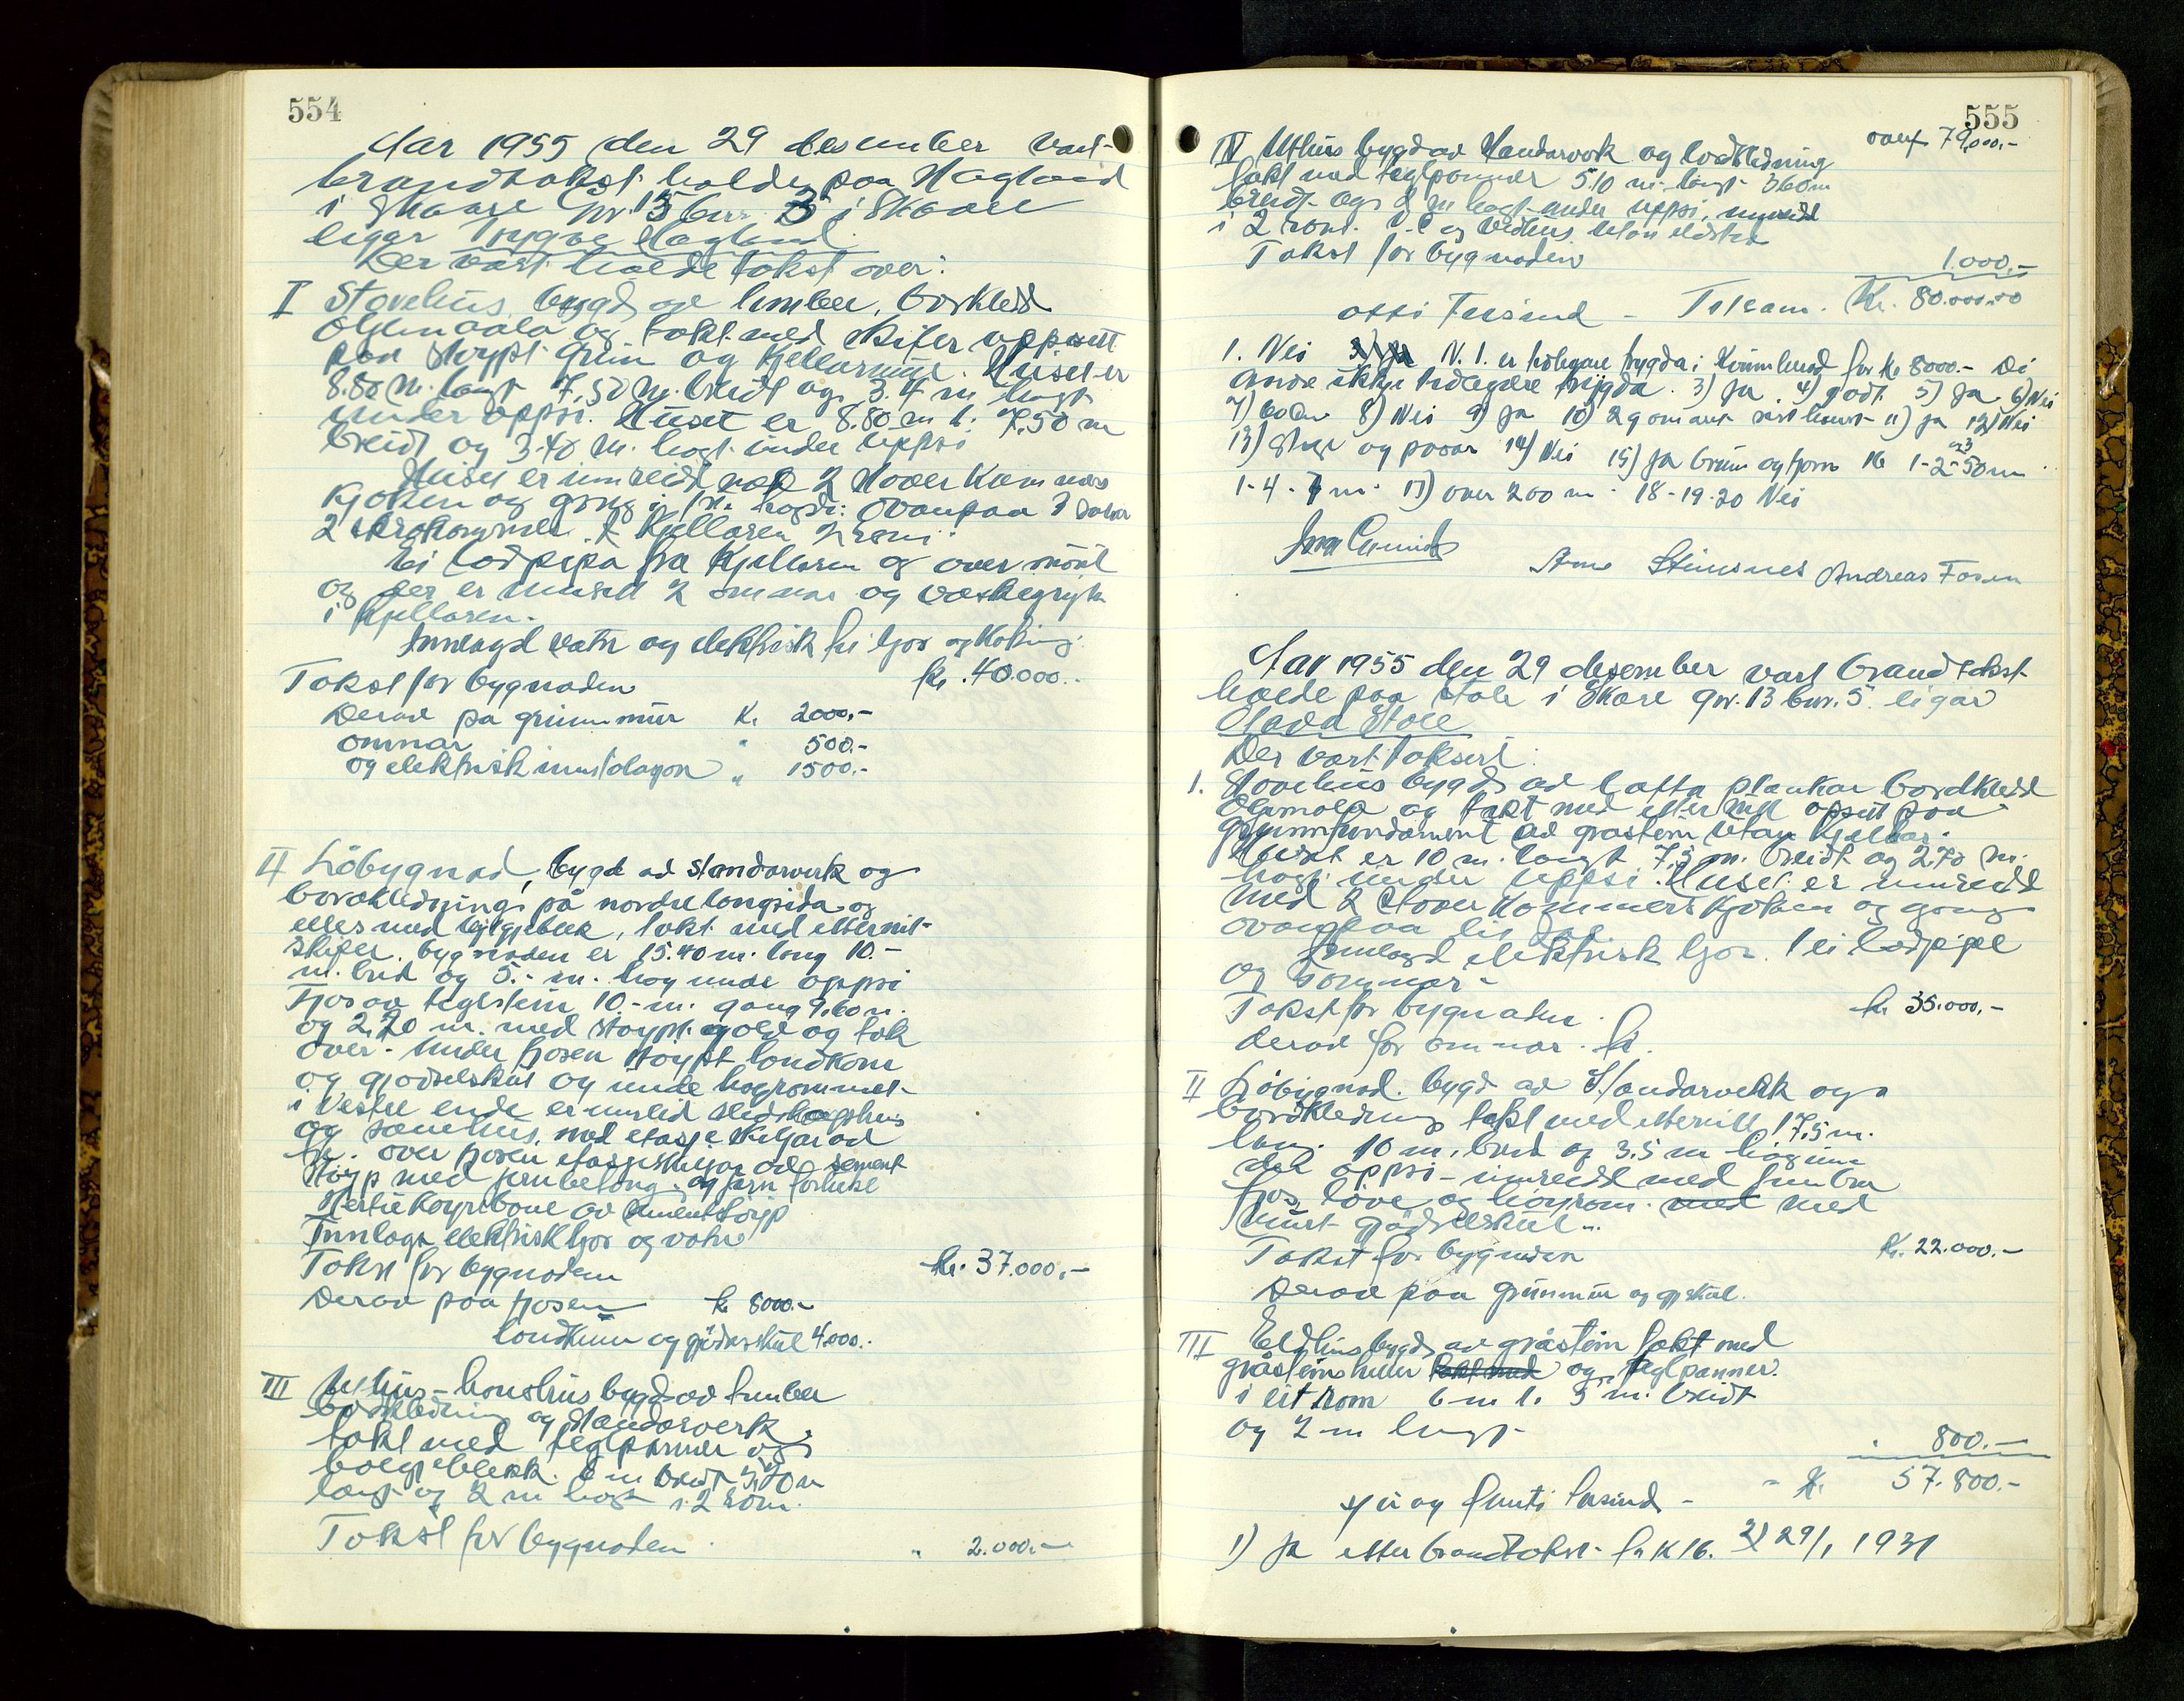 554
Aar 1955 den 29 desember vart
brandtakst halde paa Hagland
i Skaare gnr 15 bnr 3 i Skaare
eigar Trygve Hagland.
Der vart halde takst over:
I Stovehus, bygd av timber, bordkledd
oljemaala og takt med skifer uppsett
paa stöypt grun og kjellarmur. Huset er
8.80 m. langt 7,50 m. breidt og 3.4 m högt
under uppsi. Huset er 8.80 m l. 7.50 m
breidt og 3.40 m. högt under uppsi
Huset er innreidd med 2 stover kammers
kjöken og gang i 1ste högd: ovanpaa 3 
2 skraakammer. I kjellaren 2 rom.
Ei lodpipa fra kjellaren og over mönet
og der er innsett 2 omnar og vaskegryte
i kjellaren.
Innlagd vatn og elektrisk til ljos og koking.
Takst for bygnaden kr. 40.000.-
Derav på grunnmur Kr. 2000,-
omnar " 500.-
og elektrisk innstalasjon " 1500.-
II Löbygnad, bygd av standarverk og
bordkledning på nordre langsida og
elles med bylgjeblek, takt med etternit-
skifer. bygnaden er 15.40 m. lang 10.-
m. breid og 5.- m. høg under oppsi
Fjos av teglstein 10.- m. gang 9.60 m.
og 2.20 m. med støypt golv og tak
over. Under fjosen støypt landkum
og gjødselskiul og under høgrommet
i vestre ende er innreid reidskapshus
og sauehus, med etasjeskiljar av
tre. over fjosen etasjeskiljar av sement
støyp med jernbetong og jarn 
 køyrebrue av sementstøyp
Innlagt elektrisk ljos og vatn
Takst for bygnaden kr. 37.000,-
Derav paa fjosen kr 8000.-
landkum og gjødselskiul 4.000.-
III Uthus - hønsehus bygd av timber
bordkledning og standarverk
takt med teglpanner og
bølgjeblekk. m breidt 5,70 m
langt og 2 m høgt i 2 rom.
Takst for bygnaden " 2.000.-
555
overf. 79,000,-
IV Uthus bygd av standarverk og bordkledning
takt med teglpanner 5.10 m. langt 3.60 m
breidt og 2 m høgt under uppsi, innreidd
i 2 rom. V.C og vedhus utan eldstad
Takst for bygnaden 1.000.-
otti tusind - Tilsam. Kr. 80.000.00
1. Nei N. 1. er tidlegare trygda i for kr 8000.- Di
andre ikkje tidlegare trygda. 3) Ja 4) godt 5) Ja 6) Nei
7) bonde 8) Nei 9) Ja 10) 29 omaut 11) ja 12) Nei
13) Stige og 14) Nei 15) Ja brunn og tjørn 16 1-2-50 m
1-4-7 m. 17) over 200 m. 18-19-20 Nei
 Arne Steinsnes Andreas Fosen
Aar 1955 den 29 desember vart brandtakst
halde paa Stole i Skåre gnr. 13 bnr. 5. eigar
 Stole
Der vart taksert
1. Stovehus bygd av lafta plankar bordkledd
oljemala og takt med etternitt opsett paa
grunnfundament av grastein utan kjellar.
Huset er 10 m. langt 7,5 m. breidt og 2.70 m.
høgt under uppsi. Huset er innreidd
med 2 stover kammers kjøken og gang
ovanpaa 
Innlagd elektrisk ljos. 1 ei lodpipe
og omnar.
Takst for bygnaden kr. 35.000,-
derav for omnar. kr.
II Löbygnad. bygd av standarverkk og
bordkledning takt med etternitt 17,5 m.
lang. 10 m. breid og 3,5 m høg un-
der oppsi - innreidd med timbra
fjos, løve og høyrom. med med
murt gjödselskiul.
Takst for bygnaden Kr. 22.000.-
Derav paa grunnmur og gj.skiul.
III Eldhus bygd av gråstein takt med
gråsteinheller takt med og teglpanner.
i eit rom 6 m l. 5 m. breidt
og 2 m høgt 800.-
 - Kr. 57.800.-
1) Ja etter brandtakst- 2) 29/1 1931